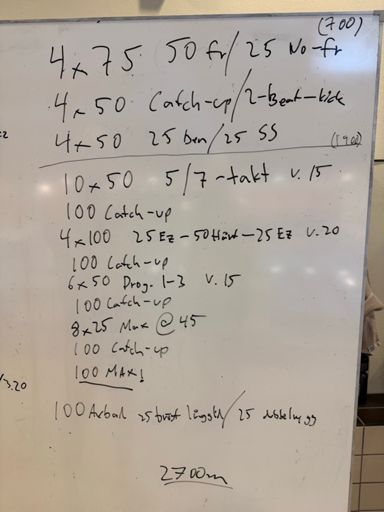 (700)
4x75 50 fr/25 No-fr
4x50 Catch-up/2-Beat-kick
4x50 25 ben/25 SS
10x50 5/7-takt v.15
100 Catch-up
4x100 25 Ez - 50 Hårt - 25 Ez v.20
100 Catch-up
6x50 Prog. 1-3 v.15
100 Catch-up
8x25 Max @ 45
100 Catch-up
100 MAX!
/3.20
100 25 /25
2700m